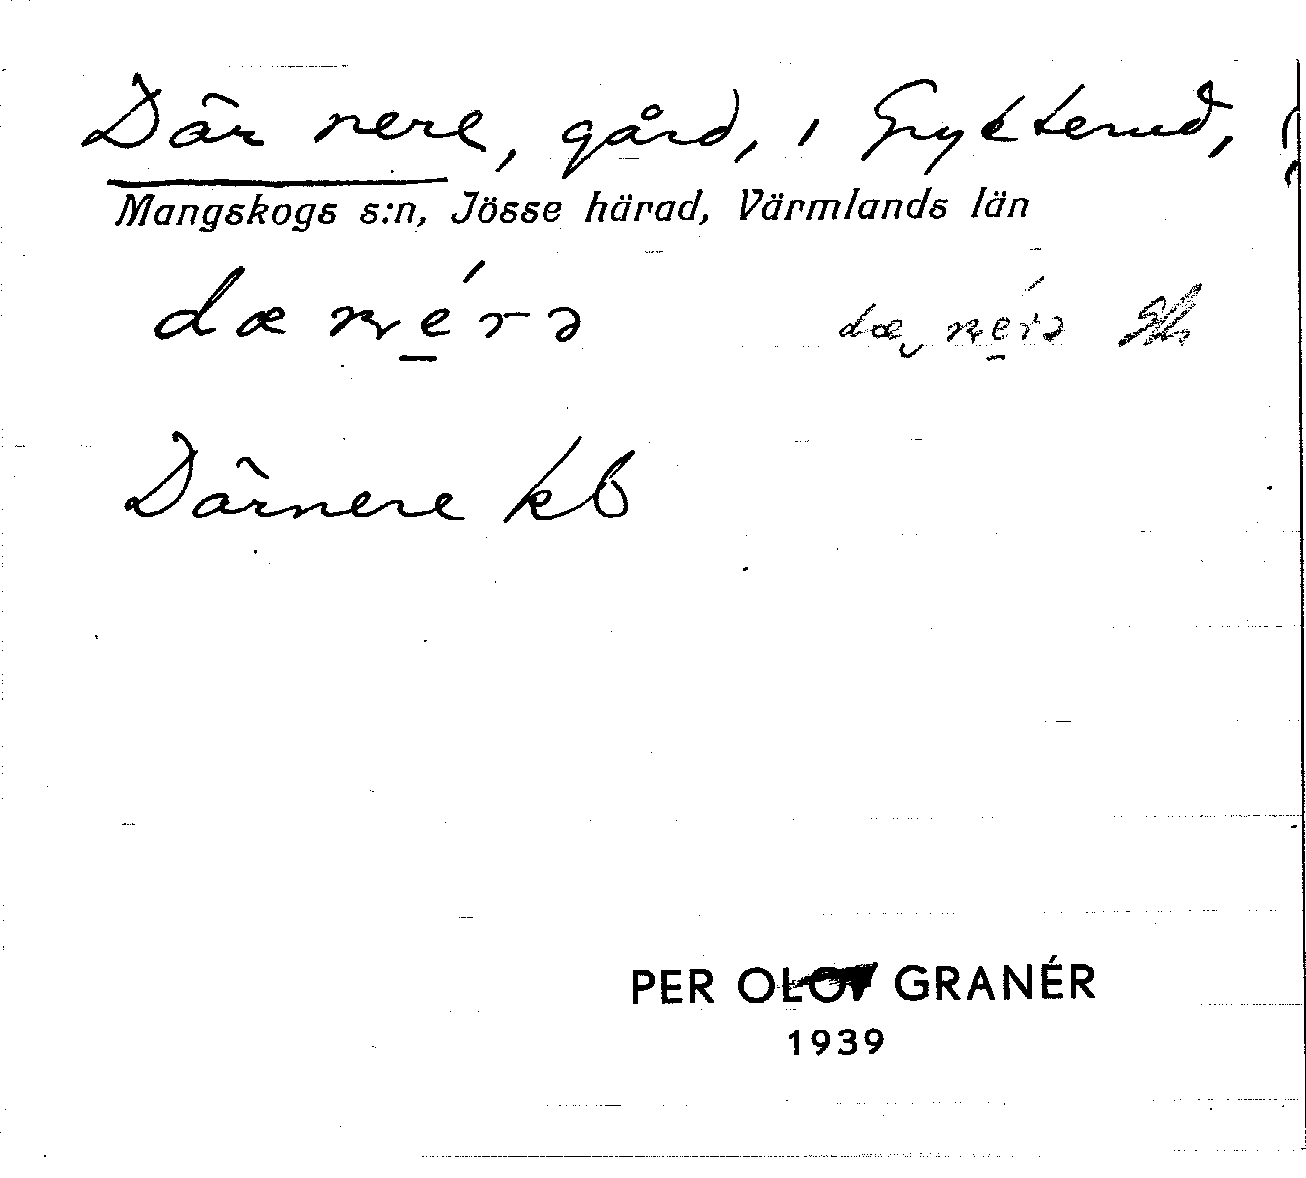 Där nere, gård, i Grykterud,
Mangskogs s:n, Jösse härad, Värmlands län
dæ nérə dæ nérə
Därnere kb
PER OLOV GRANÉR
1939